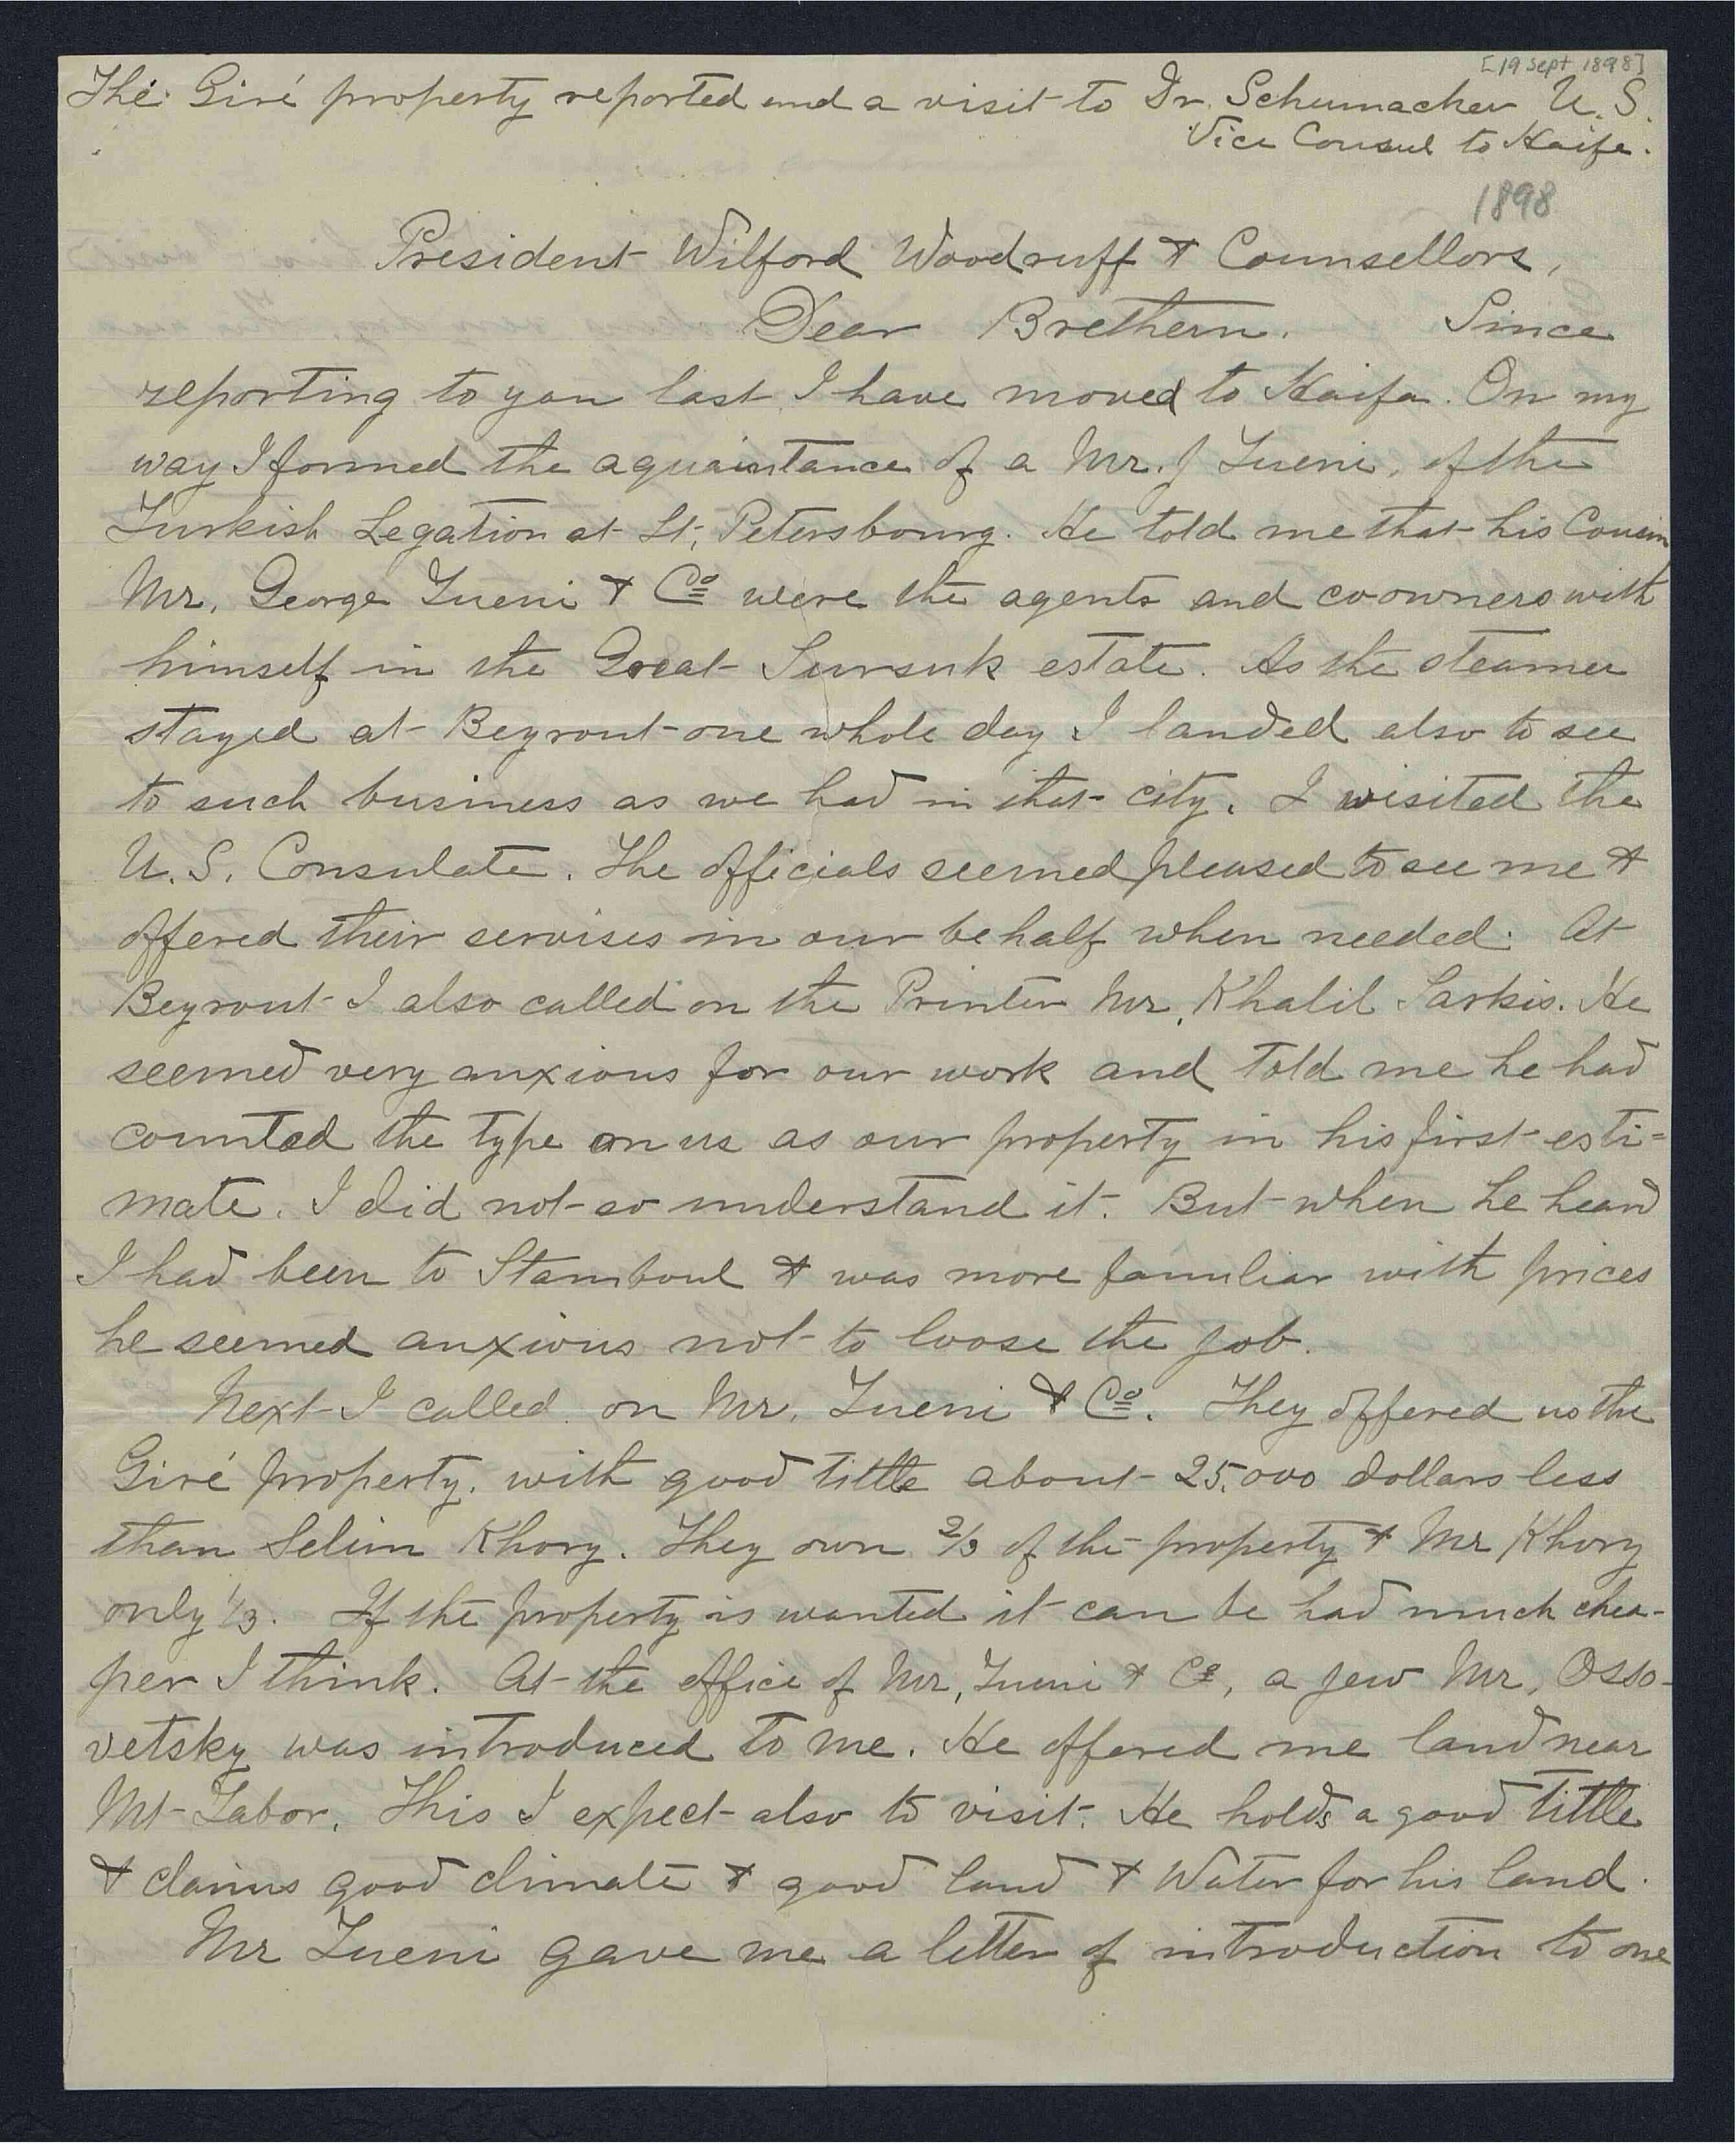 [19 Sept 1898]
The Giré property reported and a visit to Dr. Schumacher U.S.
Vice Consul to Haifa.
1898
President Wilford Woodruff & Counsellors,
Dear Brethern. Since
reporting to you last I have moved to Haifa. On my
way I formed the aquaintance of a Mr. J Tueni, of the
Turkish Legation at St, Petersbourg. He told me that his Cousin
Mr. George Tueni & Co were the agents and co-owners with
himself in the Great Sursuk estate. As the steamer
stayed at Beyrout one whole day I landed also to see
to such business as we had in that city. I visited the
U.S. Consulate. The officials seemed pleased to see me &
offered their servises in our behalf when needed. At
Beyrout I also called on the Printer Mr. Khalil Sarkis. He
seemed very anxious for our work and told me he had
counted the type on us as our property in his first esti=
mate. I did not so understand it. But when he heard
I had been to Stamboul & was more familiar with prices
he seemed anxious not to loose the job.
Next I called on Mr. Tueni & Co. They offered us the
Giré property. with good tittle about 25.000 dollars less
than Selim Khory. They own 2/3 of the property & Mr Khory
only 1/3. If the property is wanted it can be had much chea-
per I think. At the office of Mr, Tueni & Co, a jew Mr, Osso-
vetsky was introduced to me. He offered me land near
Mt Tabor. This I expect also to visit. He holds a good tittle
& claims good climate & good land & Water for his land.
Mr Tueni gave me a letter of introduction to one